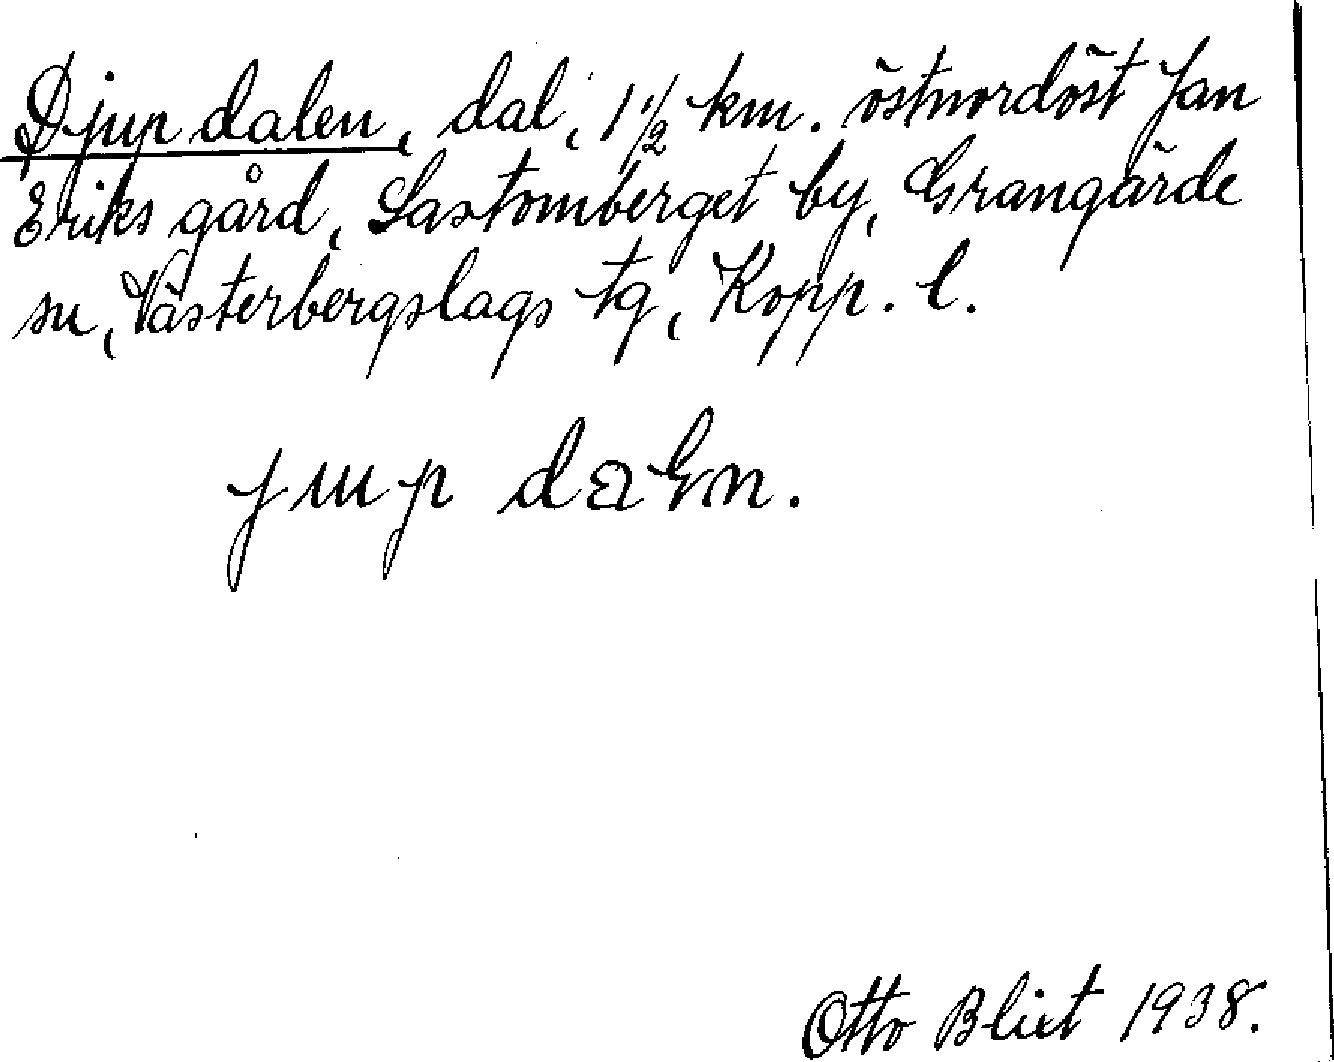 Djupdalen, dal, 1 1/2 km. östnordöst Jan
Eriks gård, Saxtomberget by, Grangärde
sn, Västerbergslags tg, Kopp. l.
dalen.
Otto Blixt 1938.